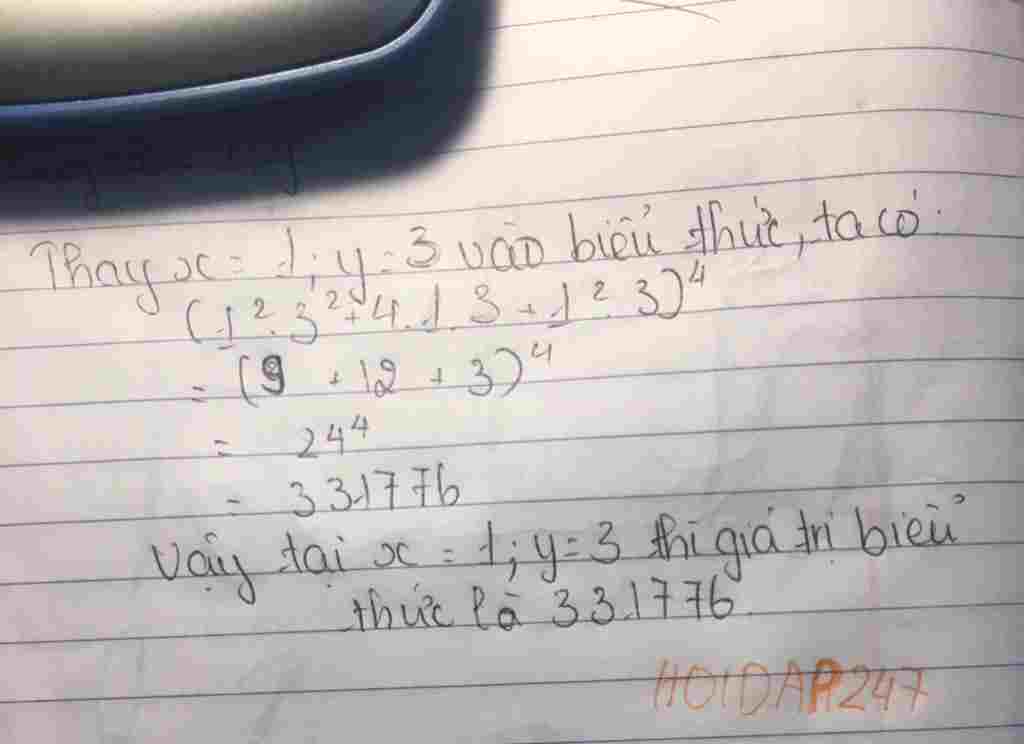 Thay x = 1; y = 3 vào biểu thức, ta có:
(1². 3² + 4.1.3 + 1². 3)⁴
= (9 + 12 + 3)⁴
= 24⁴
= 331776
Vậy tại x = 1; y = 3 thì giá trị biểu
thức là 331776.
HOIDAP247